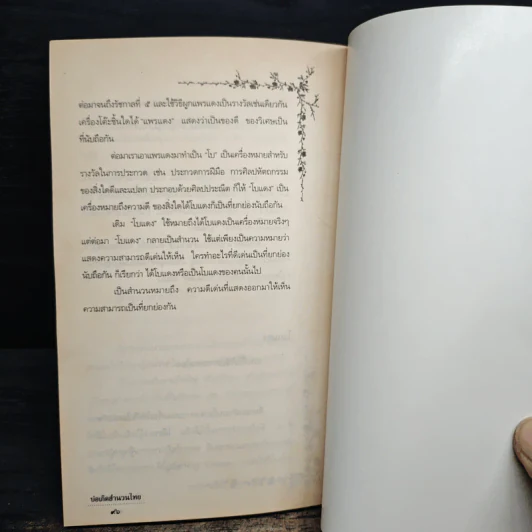 ต่อมาจนถึงรัชกาลที่ ๕ และใช้วิธีผูกแพรแดงเป็นรางวัลเช่นเดียวกัน
เครื่องโต๊ะชิ้นใดได้ "แพรแดง" แสดงว่าเป็นของดี ของวิเศษเป็น
ที่นับถือกัน
ต่อมาเราเอาแพรแดงมาทำเป็น "โบ" เป็นเครื่องหมายสำหรับ
รางวัลในการประกวด เช่น ประกวดการฝีมือ การศิลปหัตถกรรม
ของสิ่งใดดีและแปลก ประกอบด้วยศิลปประณีต ก็ให้ "โบแดง" เป็น
เครื่องหมายถึงความดี ของสิ่งใดได้โบแดงก็เป็นที่ยกย่องนับถือกัน
เดิม "โบแดง" ใช้หมายถึงได้โบแดงเป็นเครื่องหมายจริงๆ
แต่ต่อมา "โบแดง" กลายเป็นสำนวน ใช้แต่เพียงเป็นความหมายว่า
แสดงความสามารถดีเด่นให้เห็น ใครทำอะไรที่ดีเด่นเป็นที่ยกย่อง
นับถือกัน ก็เรียกว่า ได้โบแดงหรือเป็นโบแดงของคนนั้นไป
เป็นสำนวนหมายถึง ความดีเด่นที่แสดงออกมาให้เห็น
ความสามารถเป็นที่ยกย่องกัน
บ่อเกิดสำนวนไทย